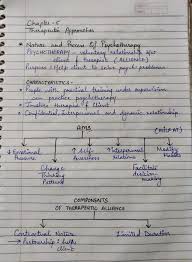 Chapter - 5
Therapeutic Approaches
Nature and Process of Psychotherapy
PSYCHOTHERAPY - voluntary relationship b/w
client and therapist (ALLIANCE)
Purpose : help client to solve psych. problems
CHARACTERISTICS :
People with practical training under supervision
can practice psychotherapy
Involves therapist & client
Confidential, interpersonal and dynamic relationship
AIMS
↓ Emotional
Pressure
Change
Thinking
Patterns
↑ Self-
Awareness
↑ Interpersonal
Relations
Facilitate
decision
making
Modify
Habits
COMPONENTS
OF THERAPEUTIC ALLIANCE
Contractual Nature
→ Partnership b/w
client
Limited Duration